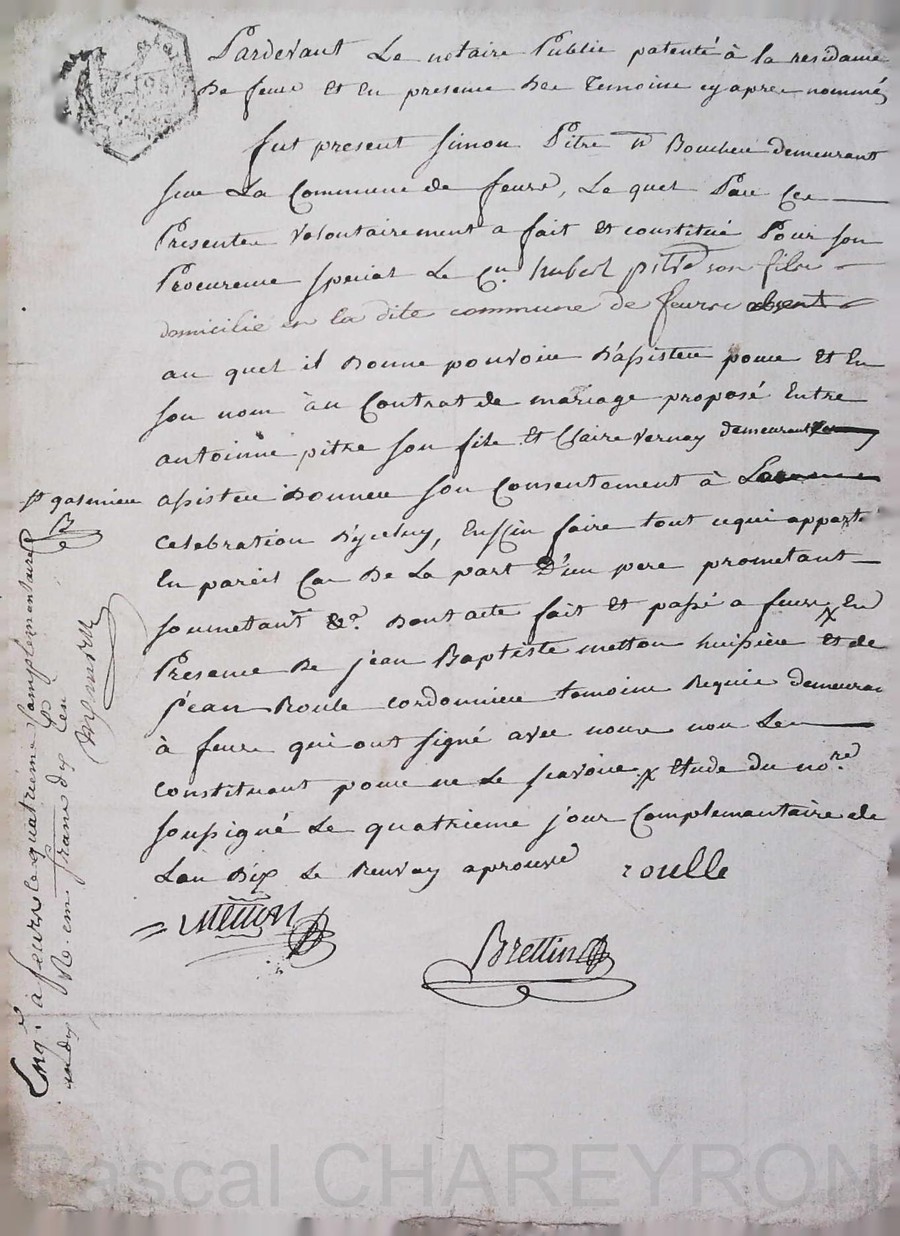 Pardevant Le notaire Public patenté à la residance
De feurs Et En presence Des Temoins cy apres nommés
fut present Simon Pitre Boucher demeurant
sur La Commune de feurs, Le quel Par Ces
Presentes Volontairement a fait Et constitué Pour son
Procureur special Le cn. hubert pitre son fils
domicilié en la dite commune de feurs
au quel il Donne pouvoir D'assister pour Et En
son nom à au Contrat de mariage proposé Entre
antoinne pitre son fils Et Claire Vernay demeurant
assister Donner son Consentement à La
Celebration D'yceluy, Enffin faire tout cequi apparté
En pareil Cas De La part D'un pere prometant
soumetant &a. Dont acte fait Et passé a feurs En
Presence De jean Baptiste metton huissier Et de
jean Roule cordonnier temoins Requis demeuran
à feurs qui ont signé avec nous non Le
constituant pour ne Le scavoir Etude du nore.
soussigné Le quatrieme jour Complementaire de
L'an Dix Le Renvoy aprouvé
roulle
Metton
Brettin
st galmier
Eng.é à feurs le quatrieme Complementaire
an dix R. un franc dix cen
Pascal CHAREYRON